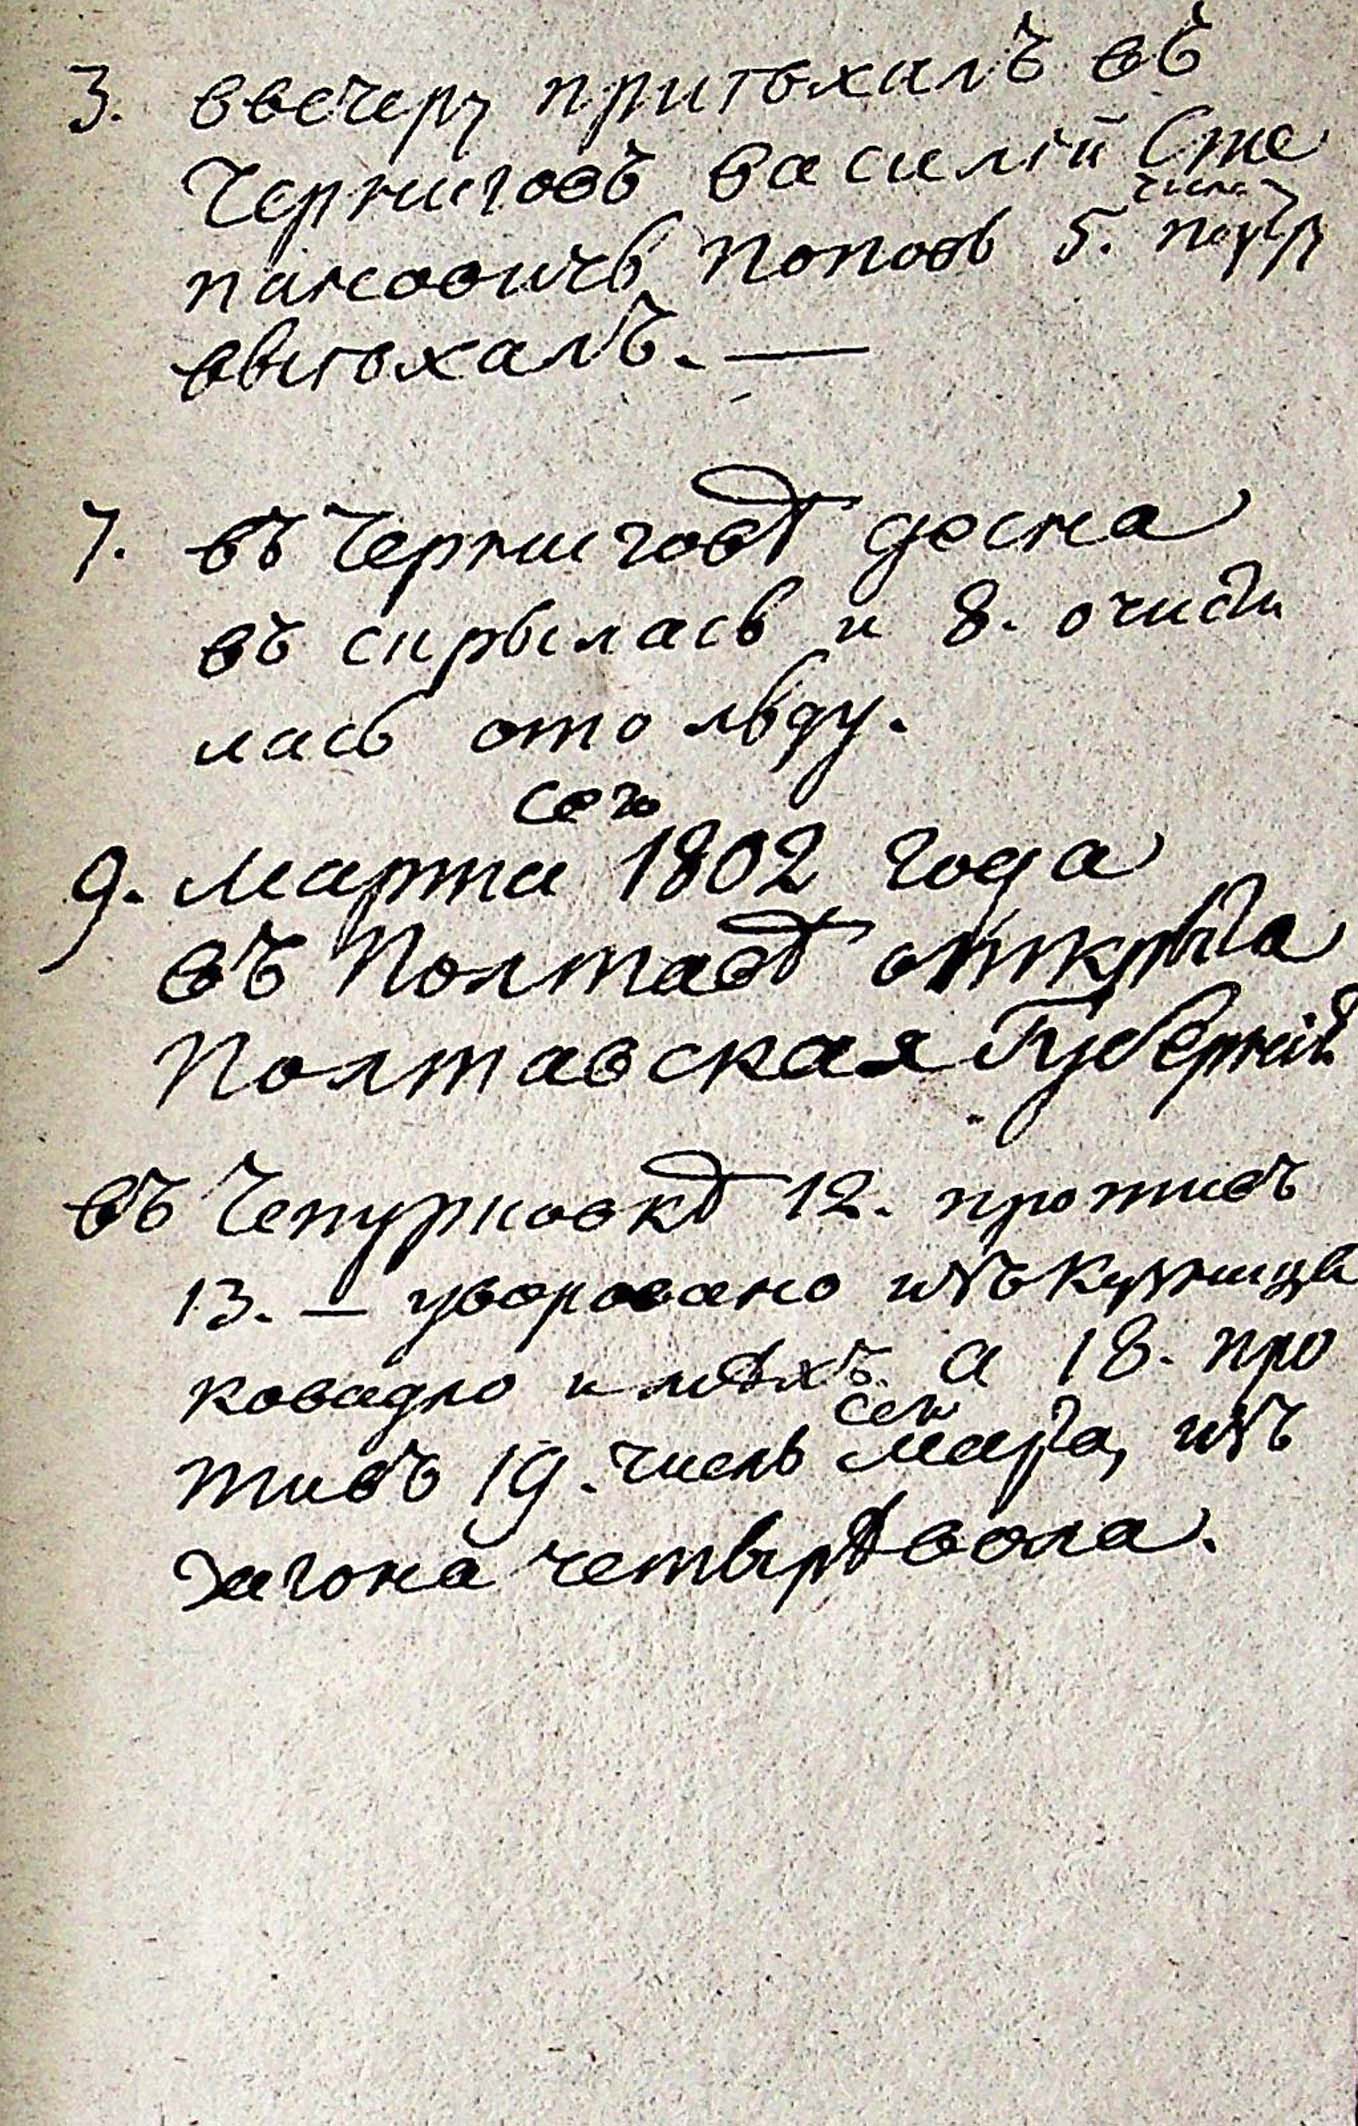 3. ввечеру приѣхалъ въ
Черниговъ Василій Сте
числа
пановичъ Поповъ 5. поутру
выѣхалъ. —
7. въ Черниговѣ десна
въ скрылась и 8. очисти
лась ото льду.
сего
9. марта 1802 года
въ Полтавѣ открыта
Полтавская Губернія.
въ Чепурковкѣ 12. противъ
13. — уворовано изъ кузницы
ковадло и мѣхъ. а 18. про
сего
тивъ 19. числъ марта, изъ
загона четырѣ вола.